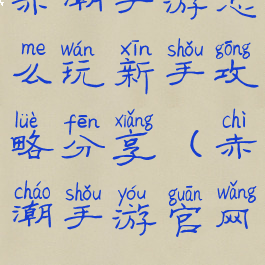 赤潮手游怎
me wán xīn shǒu gōng
么玩新手攻
lüè fēn xiǎng chì
略分享（赤
cháo shǒu yóu guān wǎng
潮手游官网